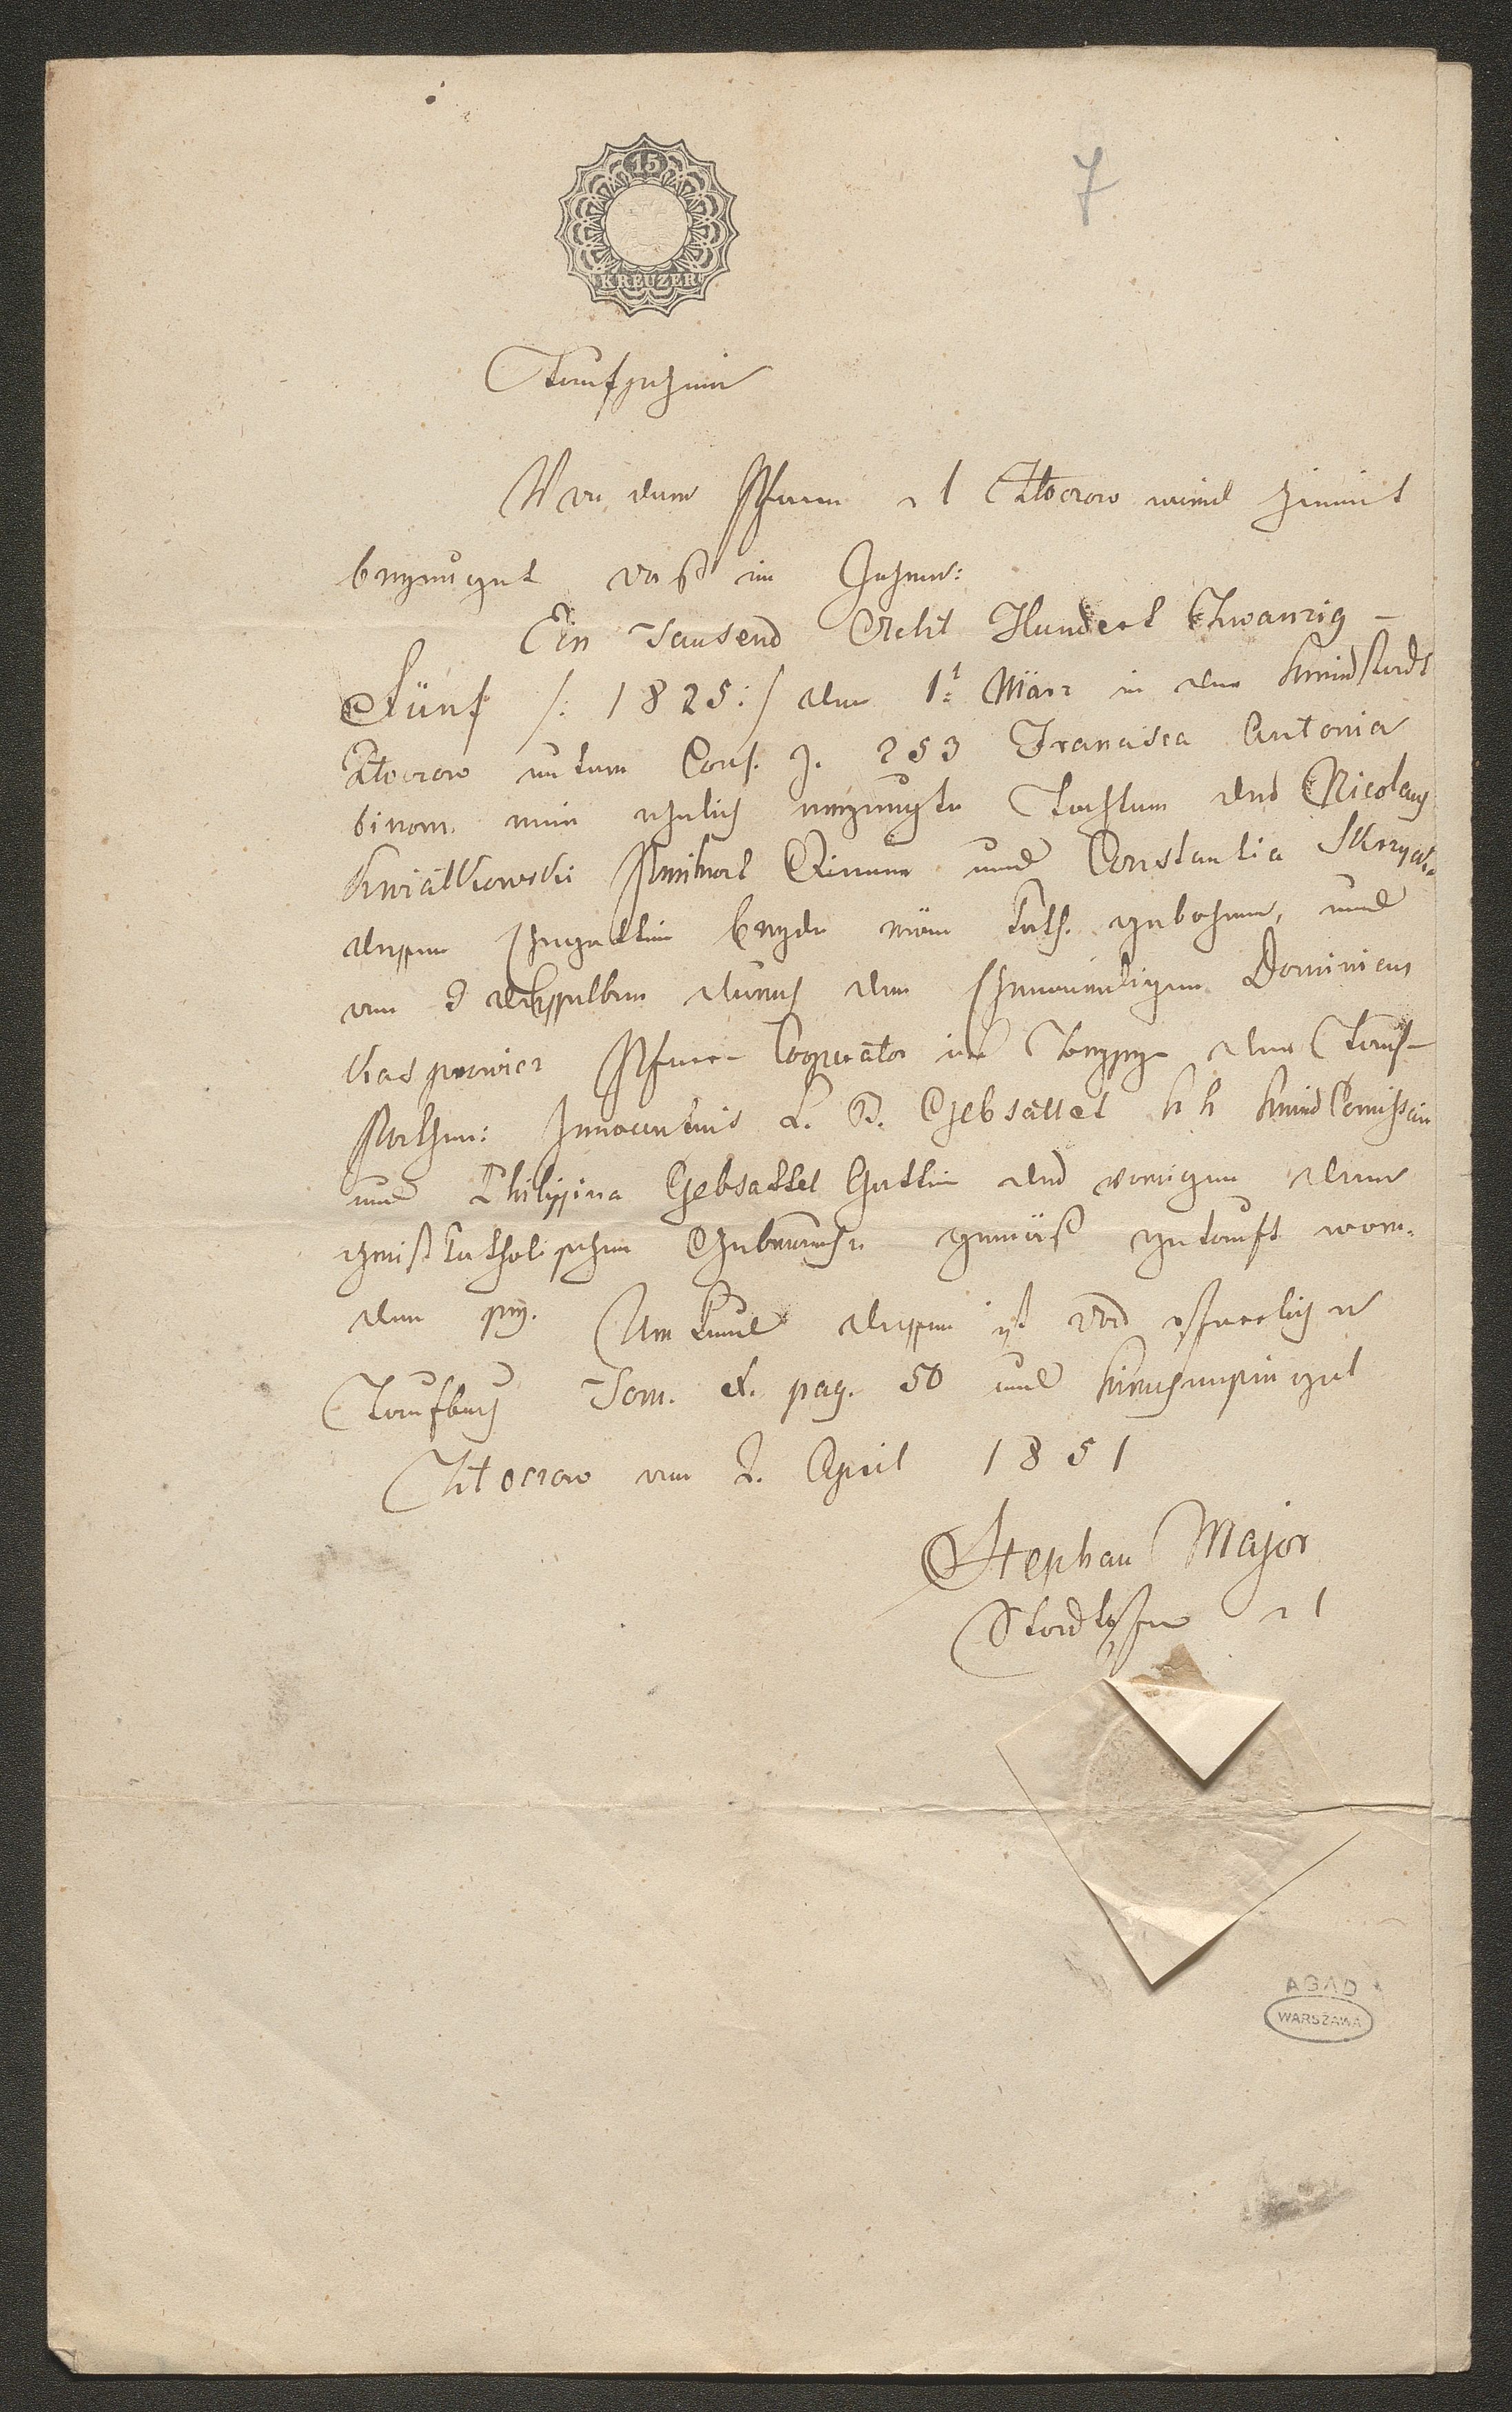 15
KREUZER
7
Taufschein
Von dem Pfarre r l Złoczow wird hiemit
bezeuget daß im Jahre:
Ein Tausend Acht Hundert Zwanzig -
Fünf /: 1825 :/ den 1t März in der Kreisstadt
Złoczow unterm Cons. Z. 253 Francisca Antonia
binom. eine ehelich erzeugte Tochter des Nicolaus
Kwiatkowski und Constantia
dessen Ehegattin beyde röm kath. geboren, und
am 2 desselben durch den Ehrwürdigen Dominicus
Kasprowicz Pfarr Cooperator im Beyseyn der Tauf-
pathen: Innocentius L. B. Gebsattel k k Kreis Comissär
und Philippina Gebsattel Gattin des vorigen dem
christkatholischen Gebrauche gemäß getauft wor-
den sey. Urkund dessen ist das pfarrliche
Taufbuch Tom. pag. 50 und Kircheninsiegel
Złoczow am 2. April 1851
Stephan Major
Stadtpfarr r l
AGAD
WARSZAWA